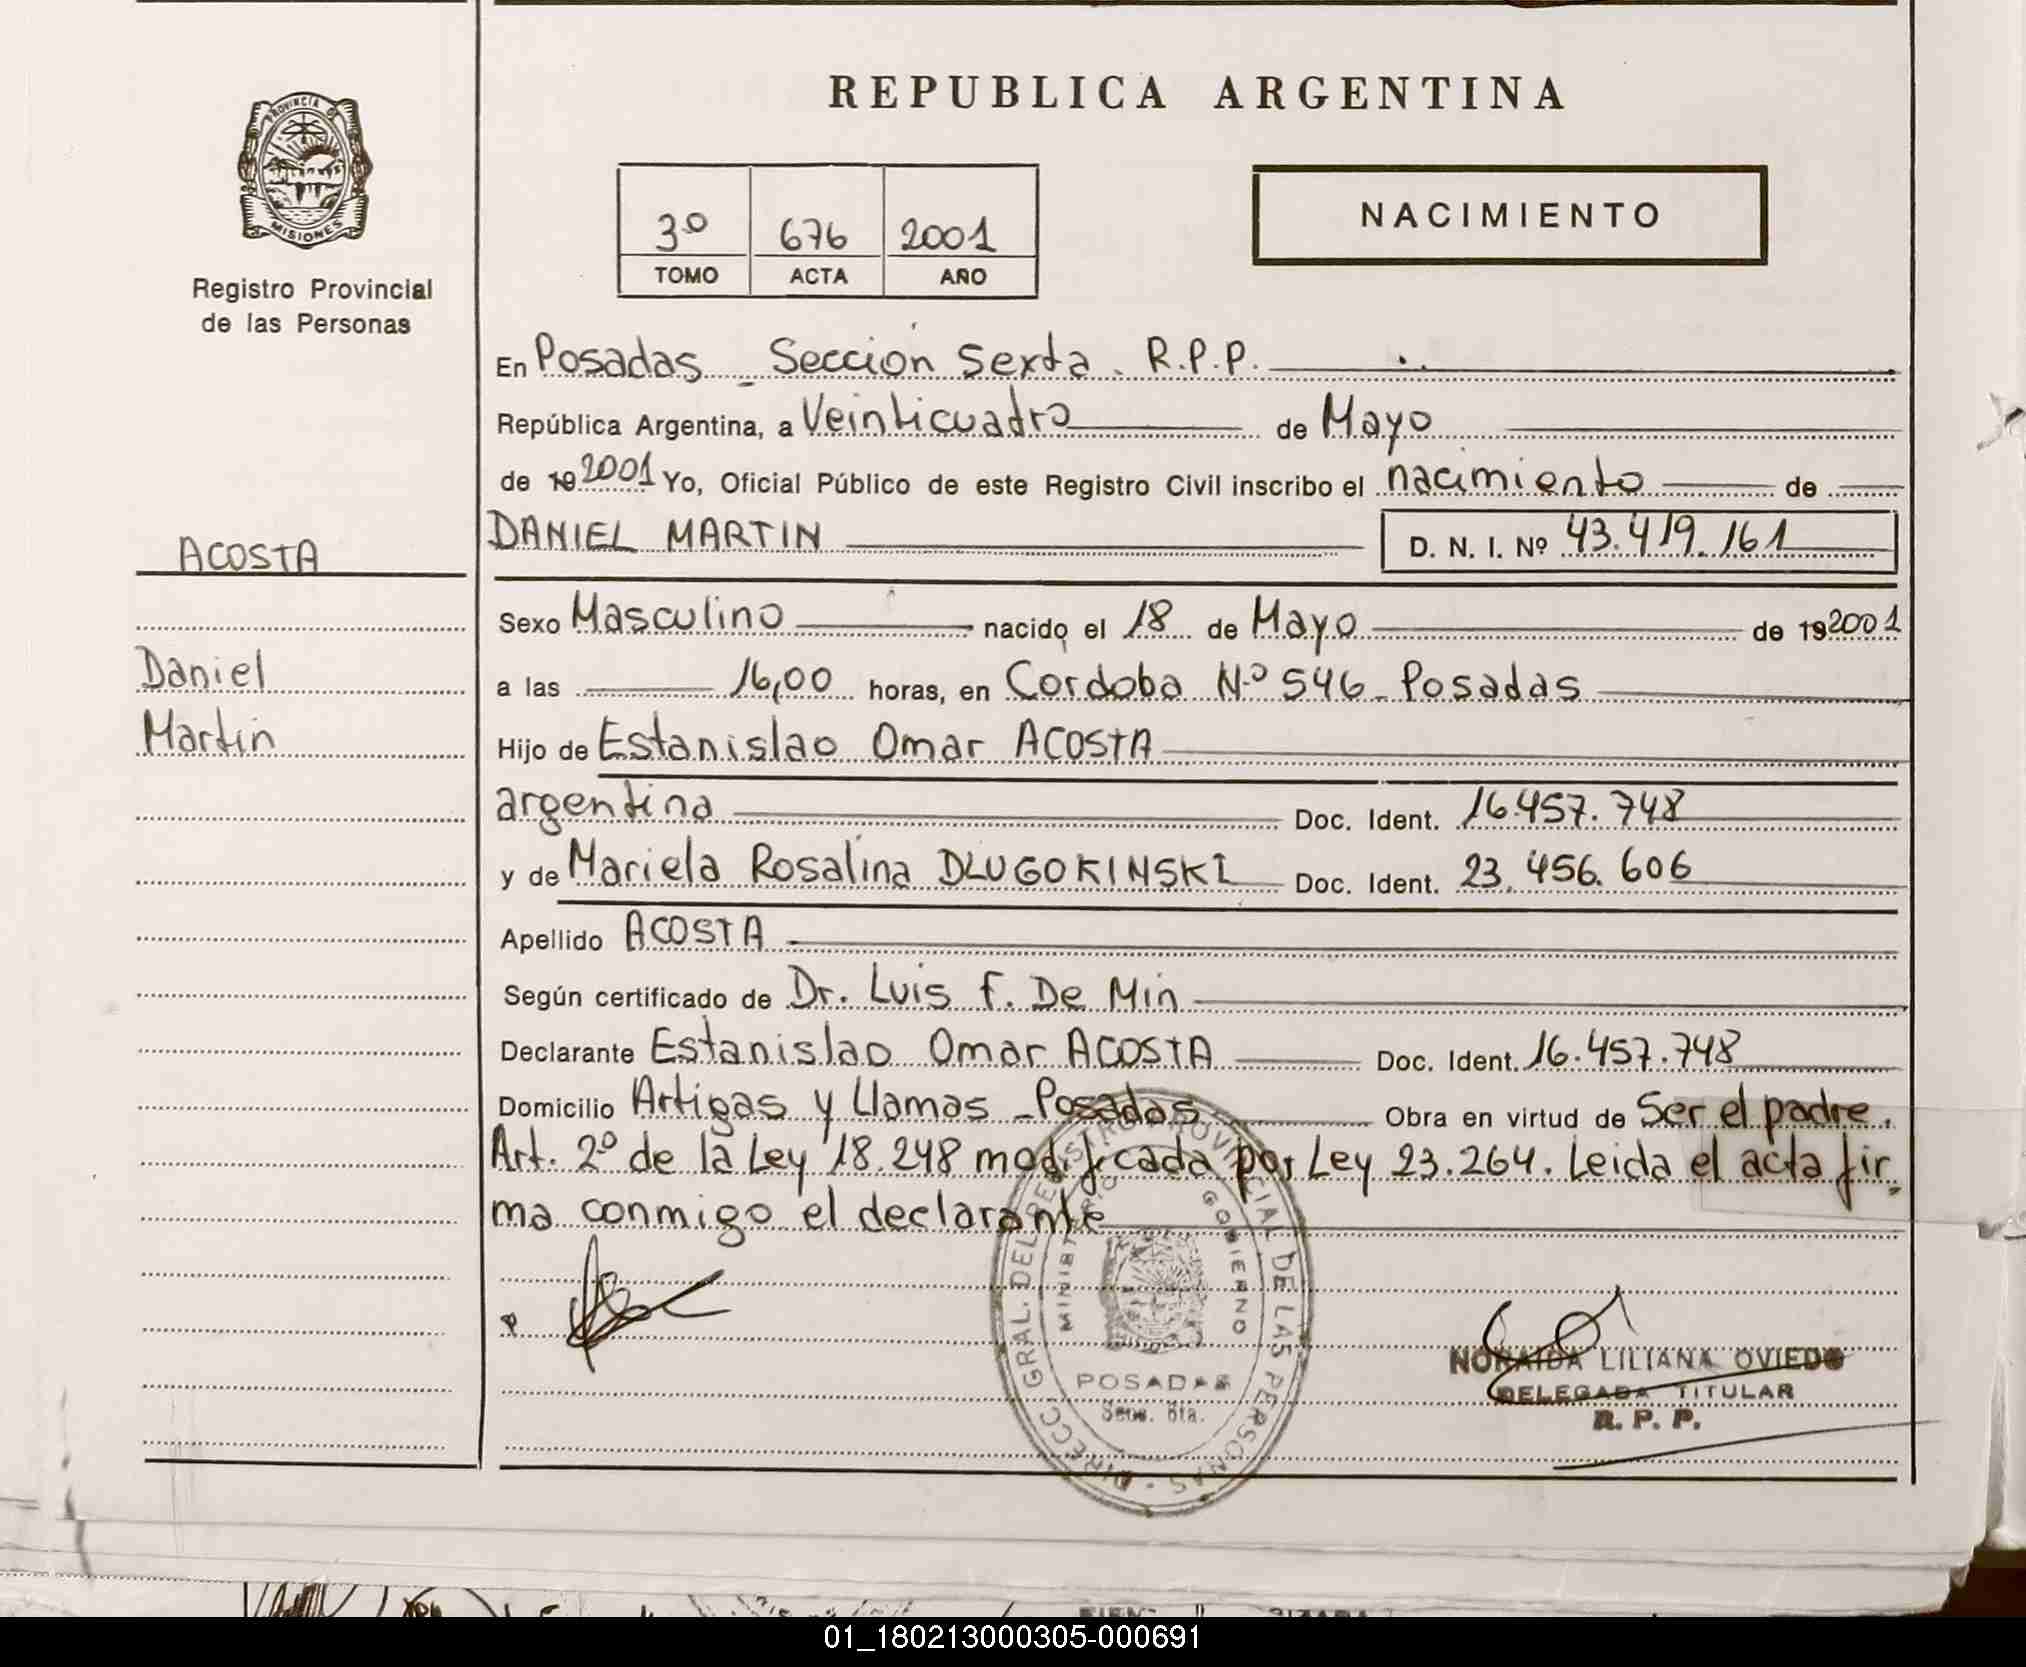 REPUBLICA ARGENTINA
PROVINCIA DE
MISIONES
Registro Provincial
de las Personas
3º 676 2001
TOMO ACTA AÑO
NACIMIENTO
En Posadas - Sección Sexta. R.P.P.
República Argentina, a Veinticuatro de Mayo
de 19 2001 Yo, Oficial Público de este Registro Civil inscribo el nacimiento de
ACOSTA
DANIEL MARTIN D. N. I. Nº 43.419.161
Sexo Masculino nacido el 18 de Mayo de 19 2001
Daniel
a las 16,00 horas, en Cordoba Nº 546 - Posadas
Martin
Hijo de Estanislao Omar ACOSTA
argentina Doc. Ident. 16.457.748
y de Mariela Rosalina DLUGOKINSKI Doc. Ident. 23.456.606
Apellido ACOSTA
Según certificado de Dr. Luis F. De Min
Declarante Estanislao Omar ACOSTA Doc. Ident. 16.457.748
Domicilio Artigas y Llamas - Posadas Obra en virtud de Ser el padre.
Art. 2º de la Ley 18.248 modificada por Ley 23.264. Leida el acta fir-
ma conmigo el declarante
DIRECC. GRAL. DEL REGISTRO PROVINCIAL DE LAS PERSONAS
MINISTERIO GOBIERNO
POSADAS
Secc. 6ta.
NORAIDA LILIANA OVIEDO
DELEGADA TITULAR
R. P. P.
01_180213000305-000691